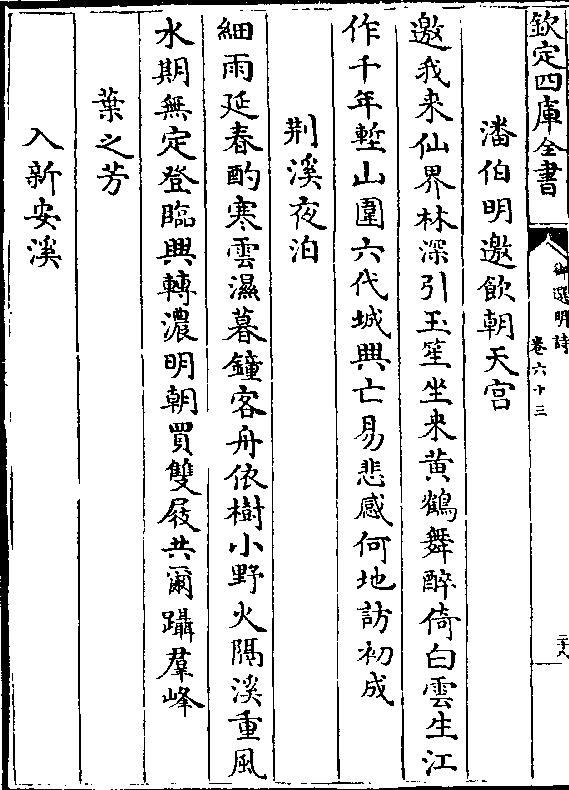 欽定四庫全書
御選明詩
卷六十三
二十八
潘伯明邀飲朝天宫
邀我来仙界林深引玉笙坐来黄鶴舞醉倚白雲生江
作千年塹山圍六代城興亡易悲感何地訪初成
荆溪夜泊
細雨延春酌寒雲濕暮鐘客舟依樹小野火隔溪重風
水期無定登臨興轉濃明朝買雙屐共爾躡羣峰
葉之芳
入新安溪